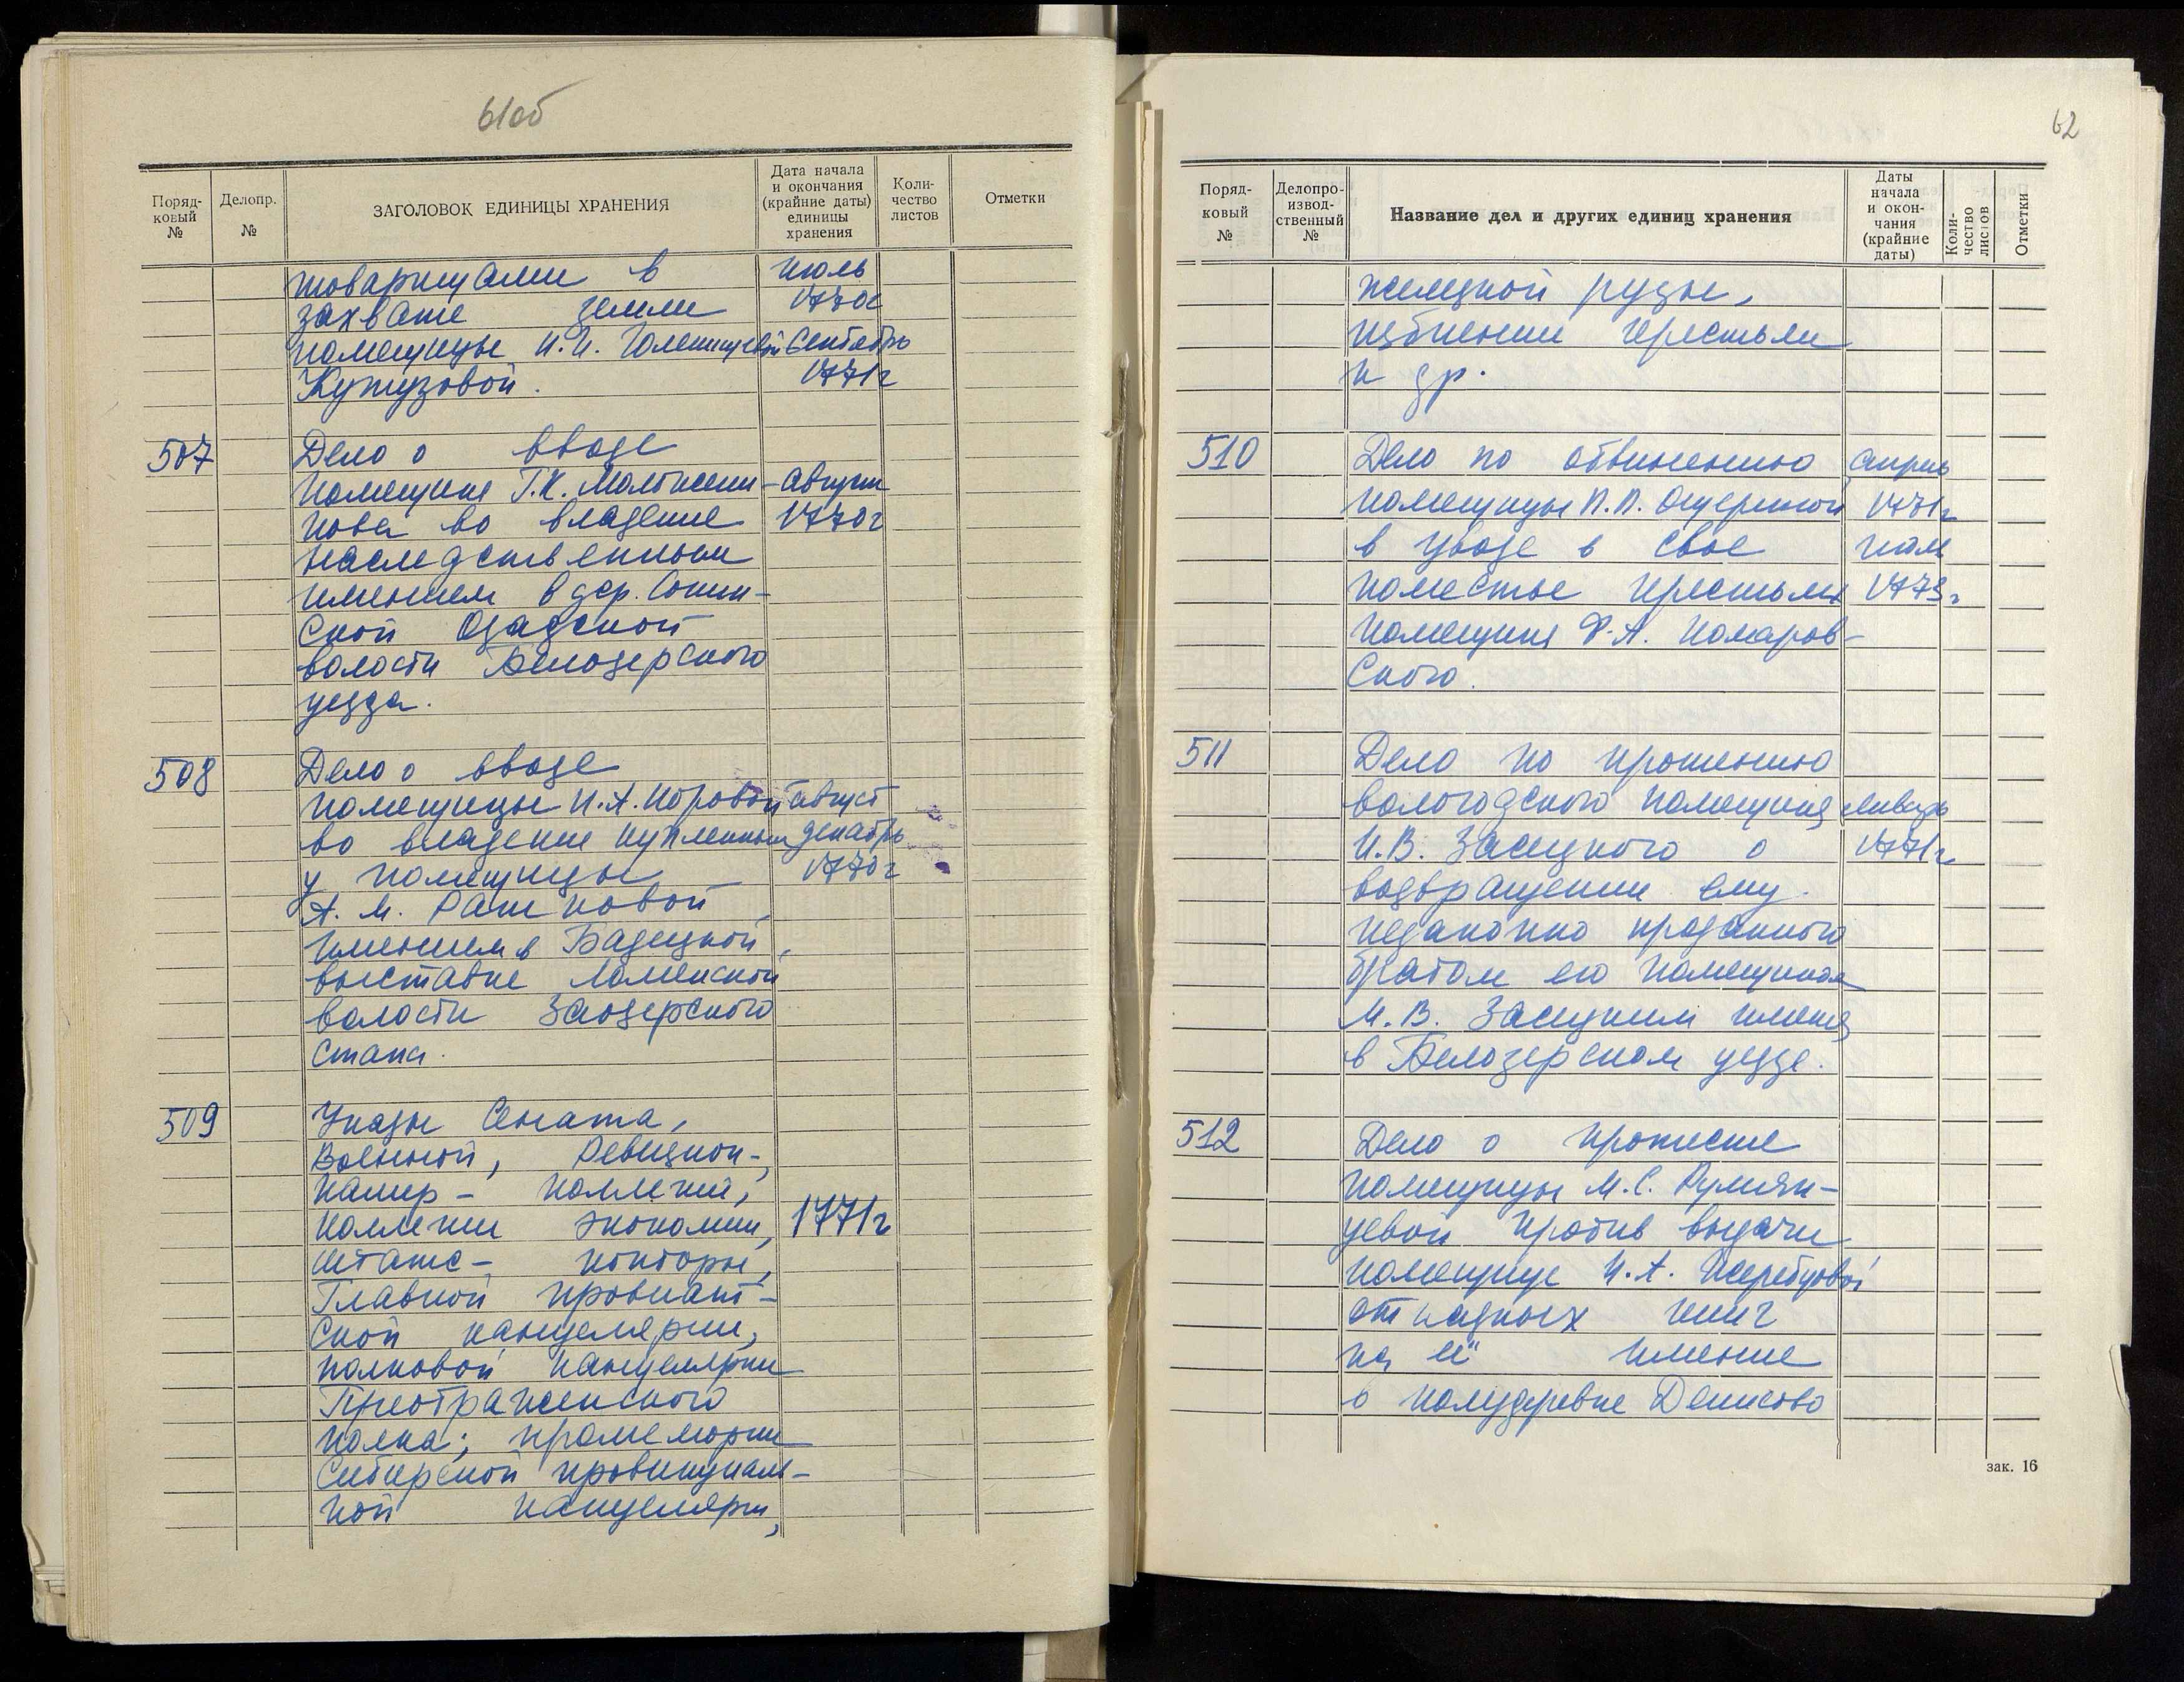 61об
Поряд-
ковый
№
Делопр.
№
ЗАГОЛОВОК ЕДИНИЦЫ ХРАНЕНИЯ
Дата начала
и окончания
(крайние даты)
единицы
хранения
Коли-
чество
листов
Отметки
товарищами в июль
захвате земли 1770г
помещицы И.И. Голенищевой Сентябрь
Кутузовой. 1771г
507 Дело о вводе
помещика Г.К. август
нова во владение 1770г
наследственным
имением в дер.
ской
волости Белозерского
уезда.
508 Дело о вводе
помещицы И.А. Норовой август
во владение купленным декабрь
у помещицы 1770г
А. М. Рашковой
имением в Бадецкой
выставке Ломенской
волости Заозерского
стана.
509 Указы Сената,
Военной, Ревизион-,
Камер- коллегий,
коллегии экономии, 1771г
Штатс- конторы,
Главной провиант-
ской канцелярии,
полковой канцелярии
Преображенского
полка; промемории
Сибирской провинциаль-
ной канцелярии,
62
Поряд-
ковый
№
Делопро-
извод-
ственный
№
Название дел и других единиц хранения
Даты
начала
и окон-
чания
(крайние
даты)
Коли-
чество
листов
Отметки
железной руды,
избиении крестьян
и др.
510 Дело по обвинению апрель
помещицы П.П. Ощериной 1771г
в уводе в свое май
поместье крестьян 1773г
помещика Ф.А. Комаров-
ского.
511 Дело по прошению
вологодского помещика январь
И.В. Засецкого о 1771г
возвращении ему
незаконно проданного
братом его помещиком
М.В. Засецким имения
в Белозерском уезде.
512 Дело о протесте
помещицы М.С. Румян-
цевой против выдачи
помещице И.А. Жеребцовой
отказных книг
на её имение
о полудеревне Денисово
зак. 16